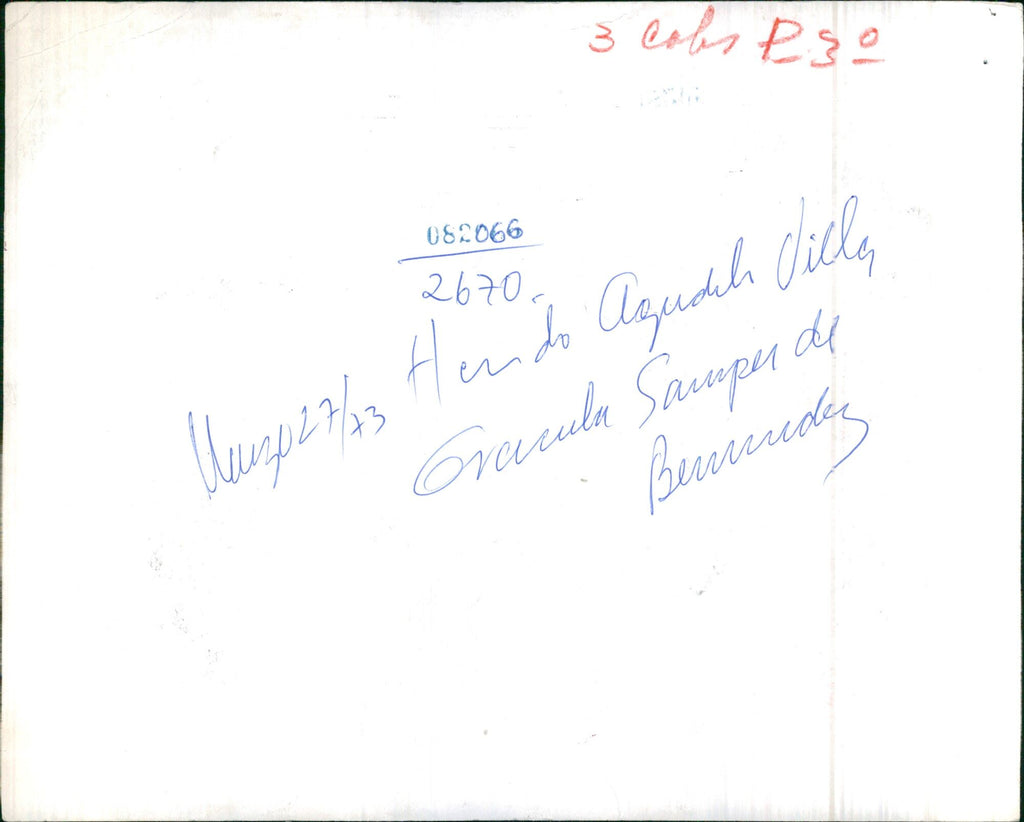 3 cols P 3º
082066
2670.
Hernando Agudelo Villa
Marzo 27/73
Graciela Samper de
Bermudez